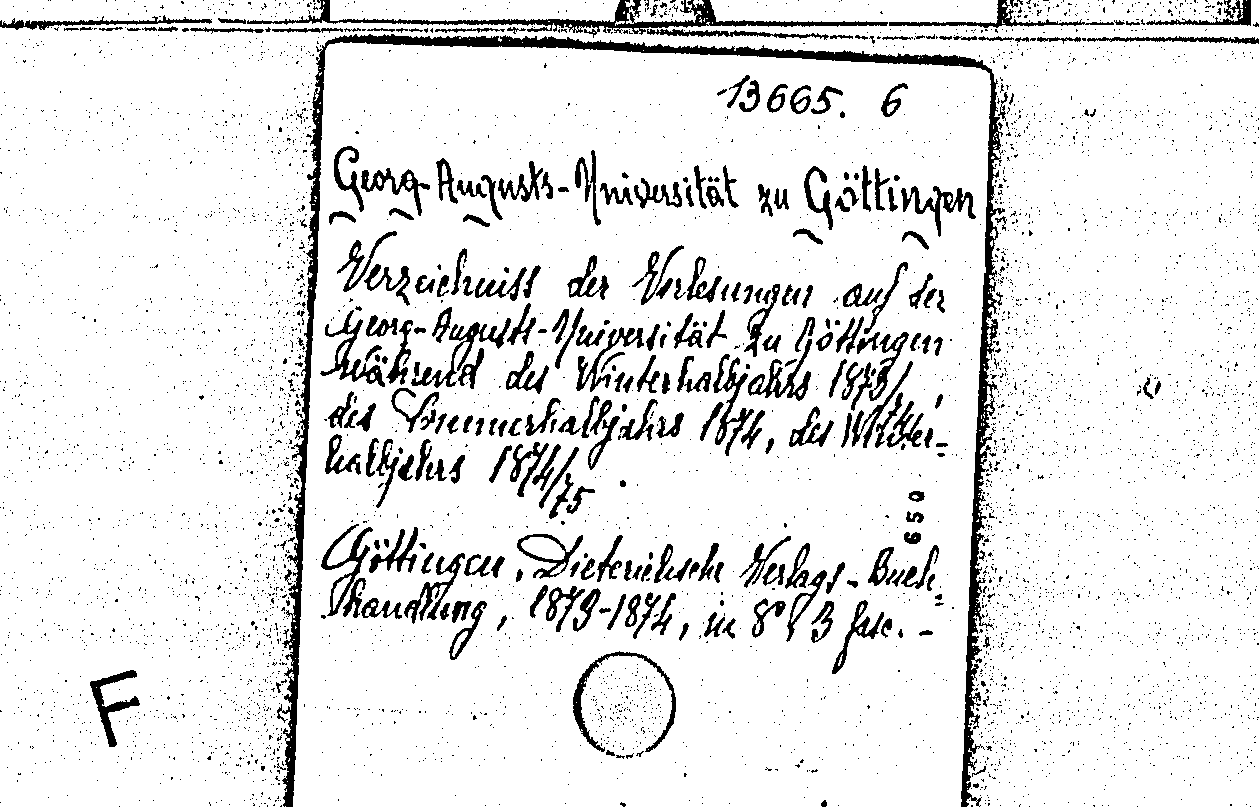 13665. 6
Georg-Augusts-Universität zu Göttingen
Verzeichniss der Vorlesungen auf der
Georg-Augusts-Universität zu Göttingen
während des Winterhalbjahrs 1873/74,
des Sommerhalbjahrs 1874, des Winter-
halbjahrs 1874/75.
650
Göttingen, Dieterichsche Verlags-Buch-
handlung, 1873-1874, in 8° 3 fasc. -
F